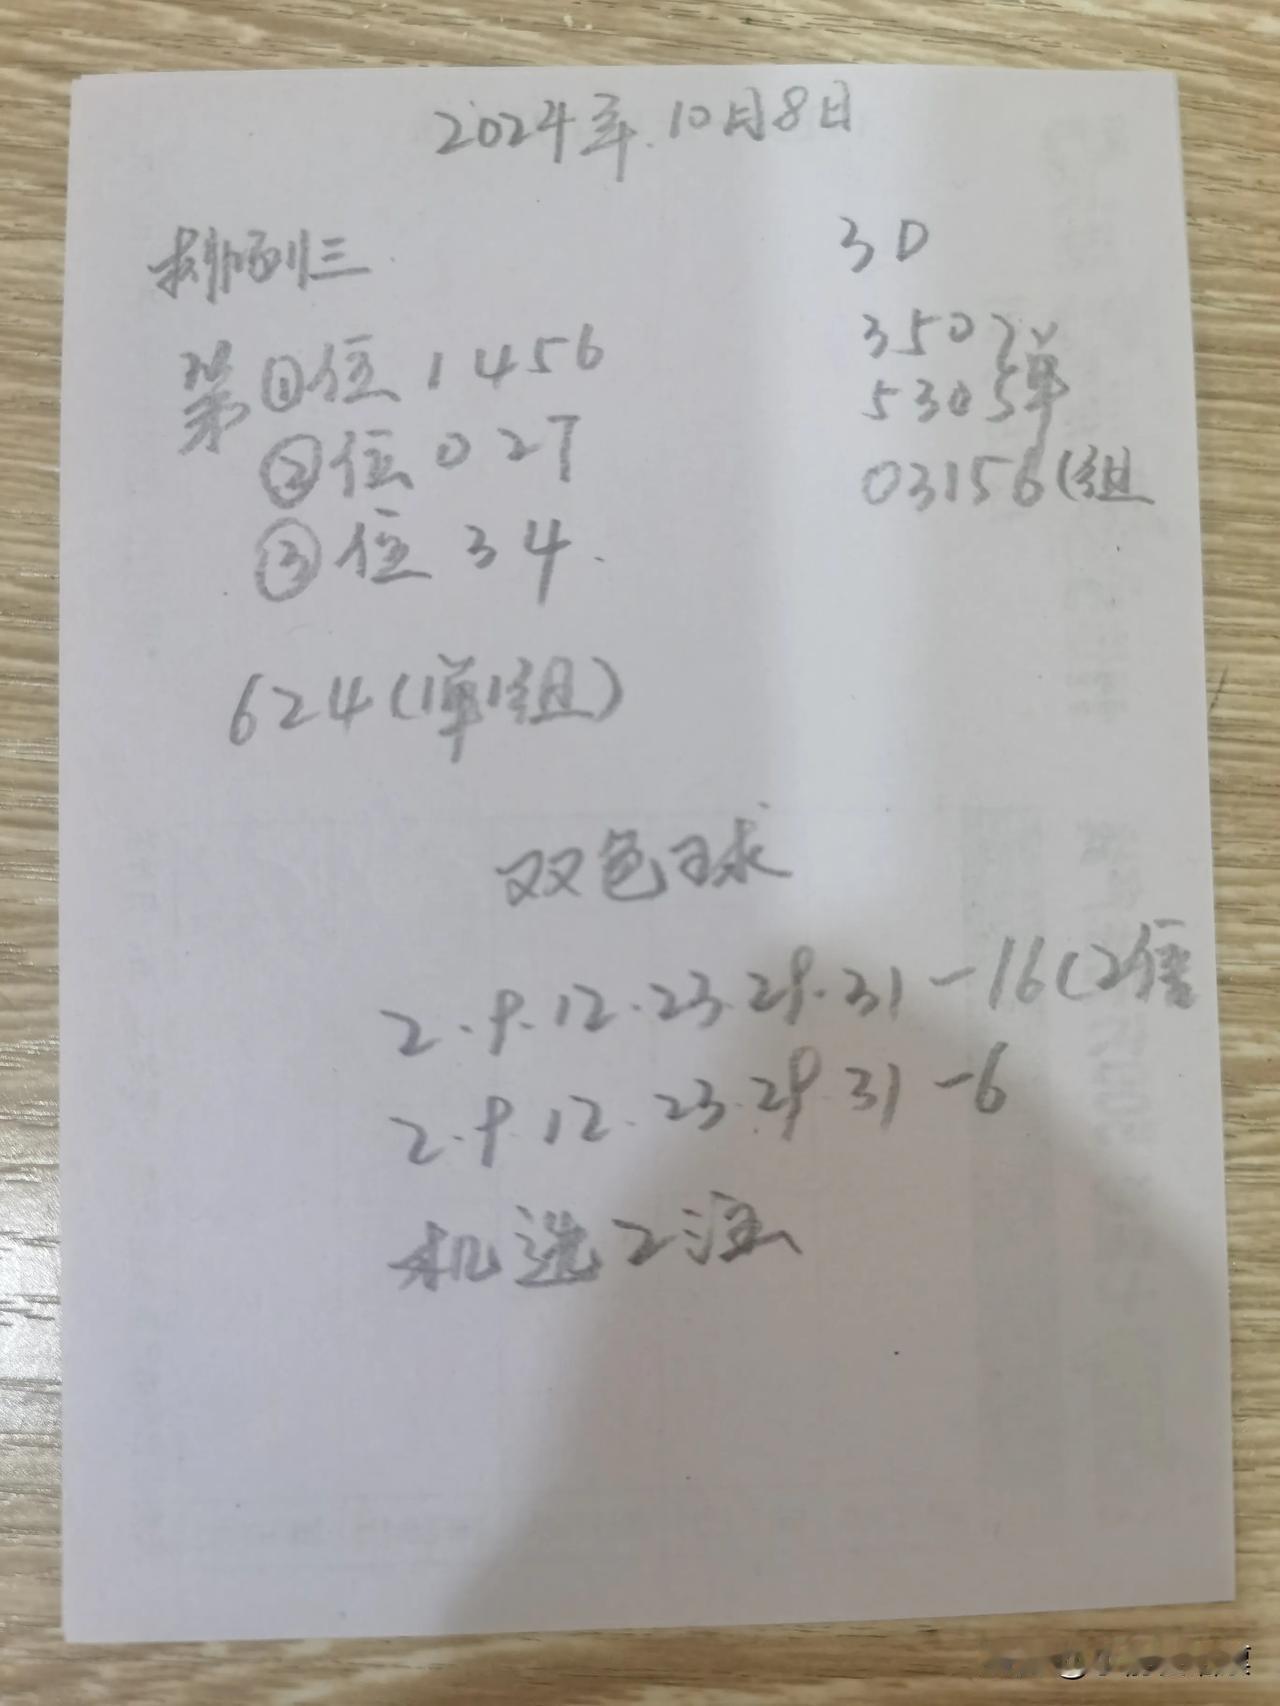 2024年.10月8日
排列三
第①位 1456
②位 027
③位 34.
624(1单1组)
3D
350 2单
530 5单
03156(组
双色球
2.9.12.23.29.31-16(2倍
2.9.12.23.29.31-6
机选2注